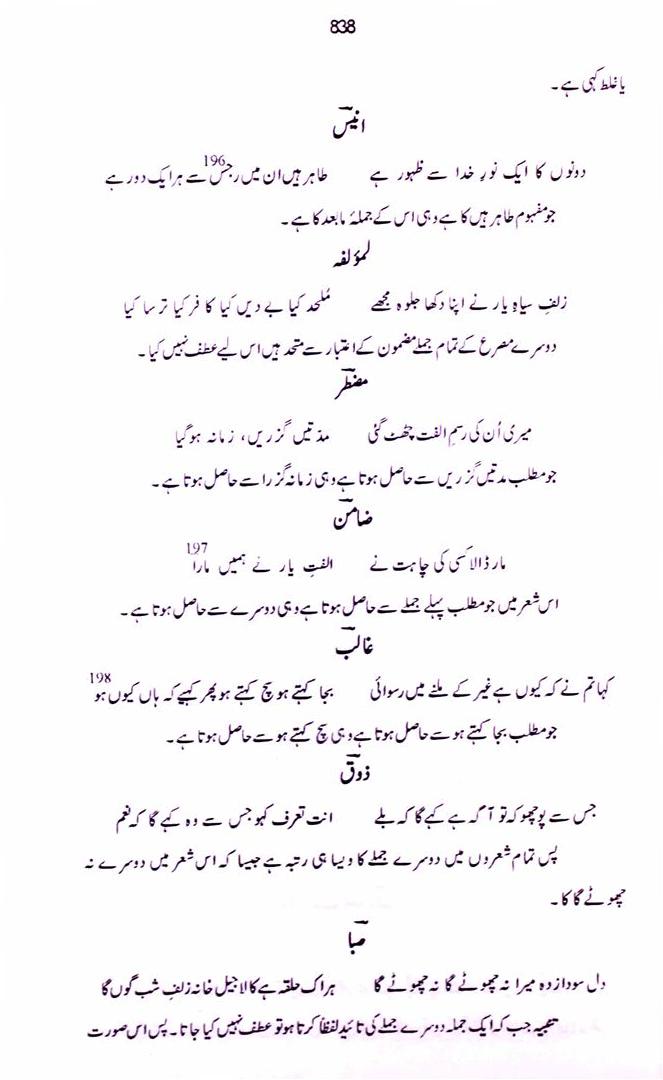 838
یا غلط کہی ہے۔
انیس
دونوں کا ایک نورِ خدا سے ظہور ہے طاہر ہیں ان میں رجس سے ہر ایک دور ہے 196
جو مفہوم طاہر ہیں کا ہے وہی اس کے جملۂ مابعد کا ہے۔
لمؤلفہ
زلفِ سیاہِ یار نے اپنا دکھا جلوہ مجھے مُلحد کیا بے دیں کیا کافر کیا ترسا کیا
دوسرے مصرع کے تمام جملے مضمون کے اعتبار سے متحد ہیں اس لیے عطف نہیں کیا۔
مضطر
میری اُن کی رسمِ الفت چھٹ گئی مدتیں گزریں، زمانہ ہوگیا
جو مطلب مدتیں گزریں سے حاصل ہوتا ہے وہی زمانہ گزرا سے حاصل ہوتا ہے۔
ضامن
مار ڈالا کسی کی چاہت نے الفتِ یار نے ہمیں مارا 197
اس شعر میں جو مطلب پہلے جملے سے حاصل ہوتا ہے وہی دوسرے سے حاصل ہوتا ہے۔
غالب
کہا تم نے کہ کیوں ہے غیر کے ملنے میں رسوائی بجا کہتے ہو سچ کہتے ہو پھر کہیے کہ ہاں کیوں ہو 198
جو مطلب بجا کہتے ہو سے حاصل ہوتا ہے وہی سچ کہتے ہو سے حاصل ہوتا ہے۔
ذوق
جس سے پوچھو کہ تو آگہ ہے کہے گا کہ بلے انت تعرف کہو جس سے وہ کہے گا کہ نعم
پس تمام شعروں میں دوسرے جملے کا ویسا ہی رتبہ ہے جیسا کہ اس شعر میں دوسرے نہ
چھوٹے گا کا۔
صبا
دل سودا زدہ میرا نہ چھوٹے گا نہ چھوٹے گا ہر اک حلقہ ہے کالا جیل خانہ زلفِ شب گوں گا
تنبیہ جب کہ ایک جملہ دوسرے جملے کی تائید لفظاً کرتا ہو تو عطف نہیں کیا جاتا۔ پس اس صورت